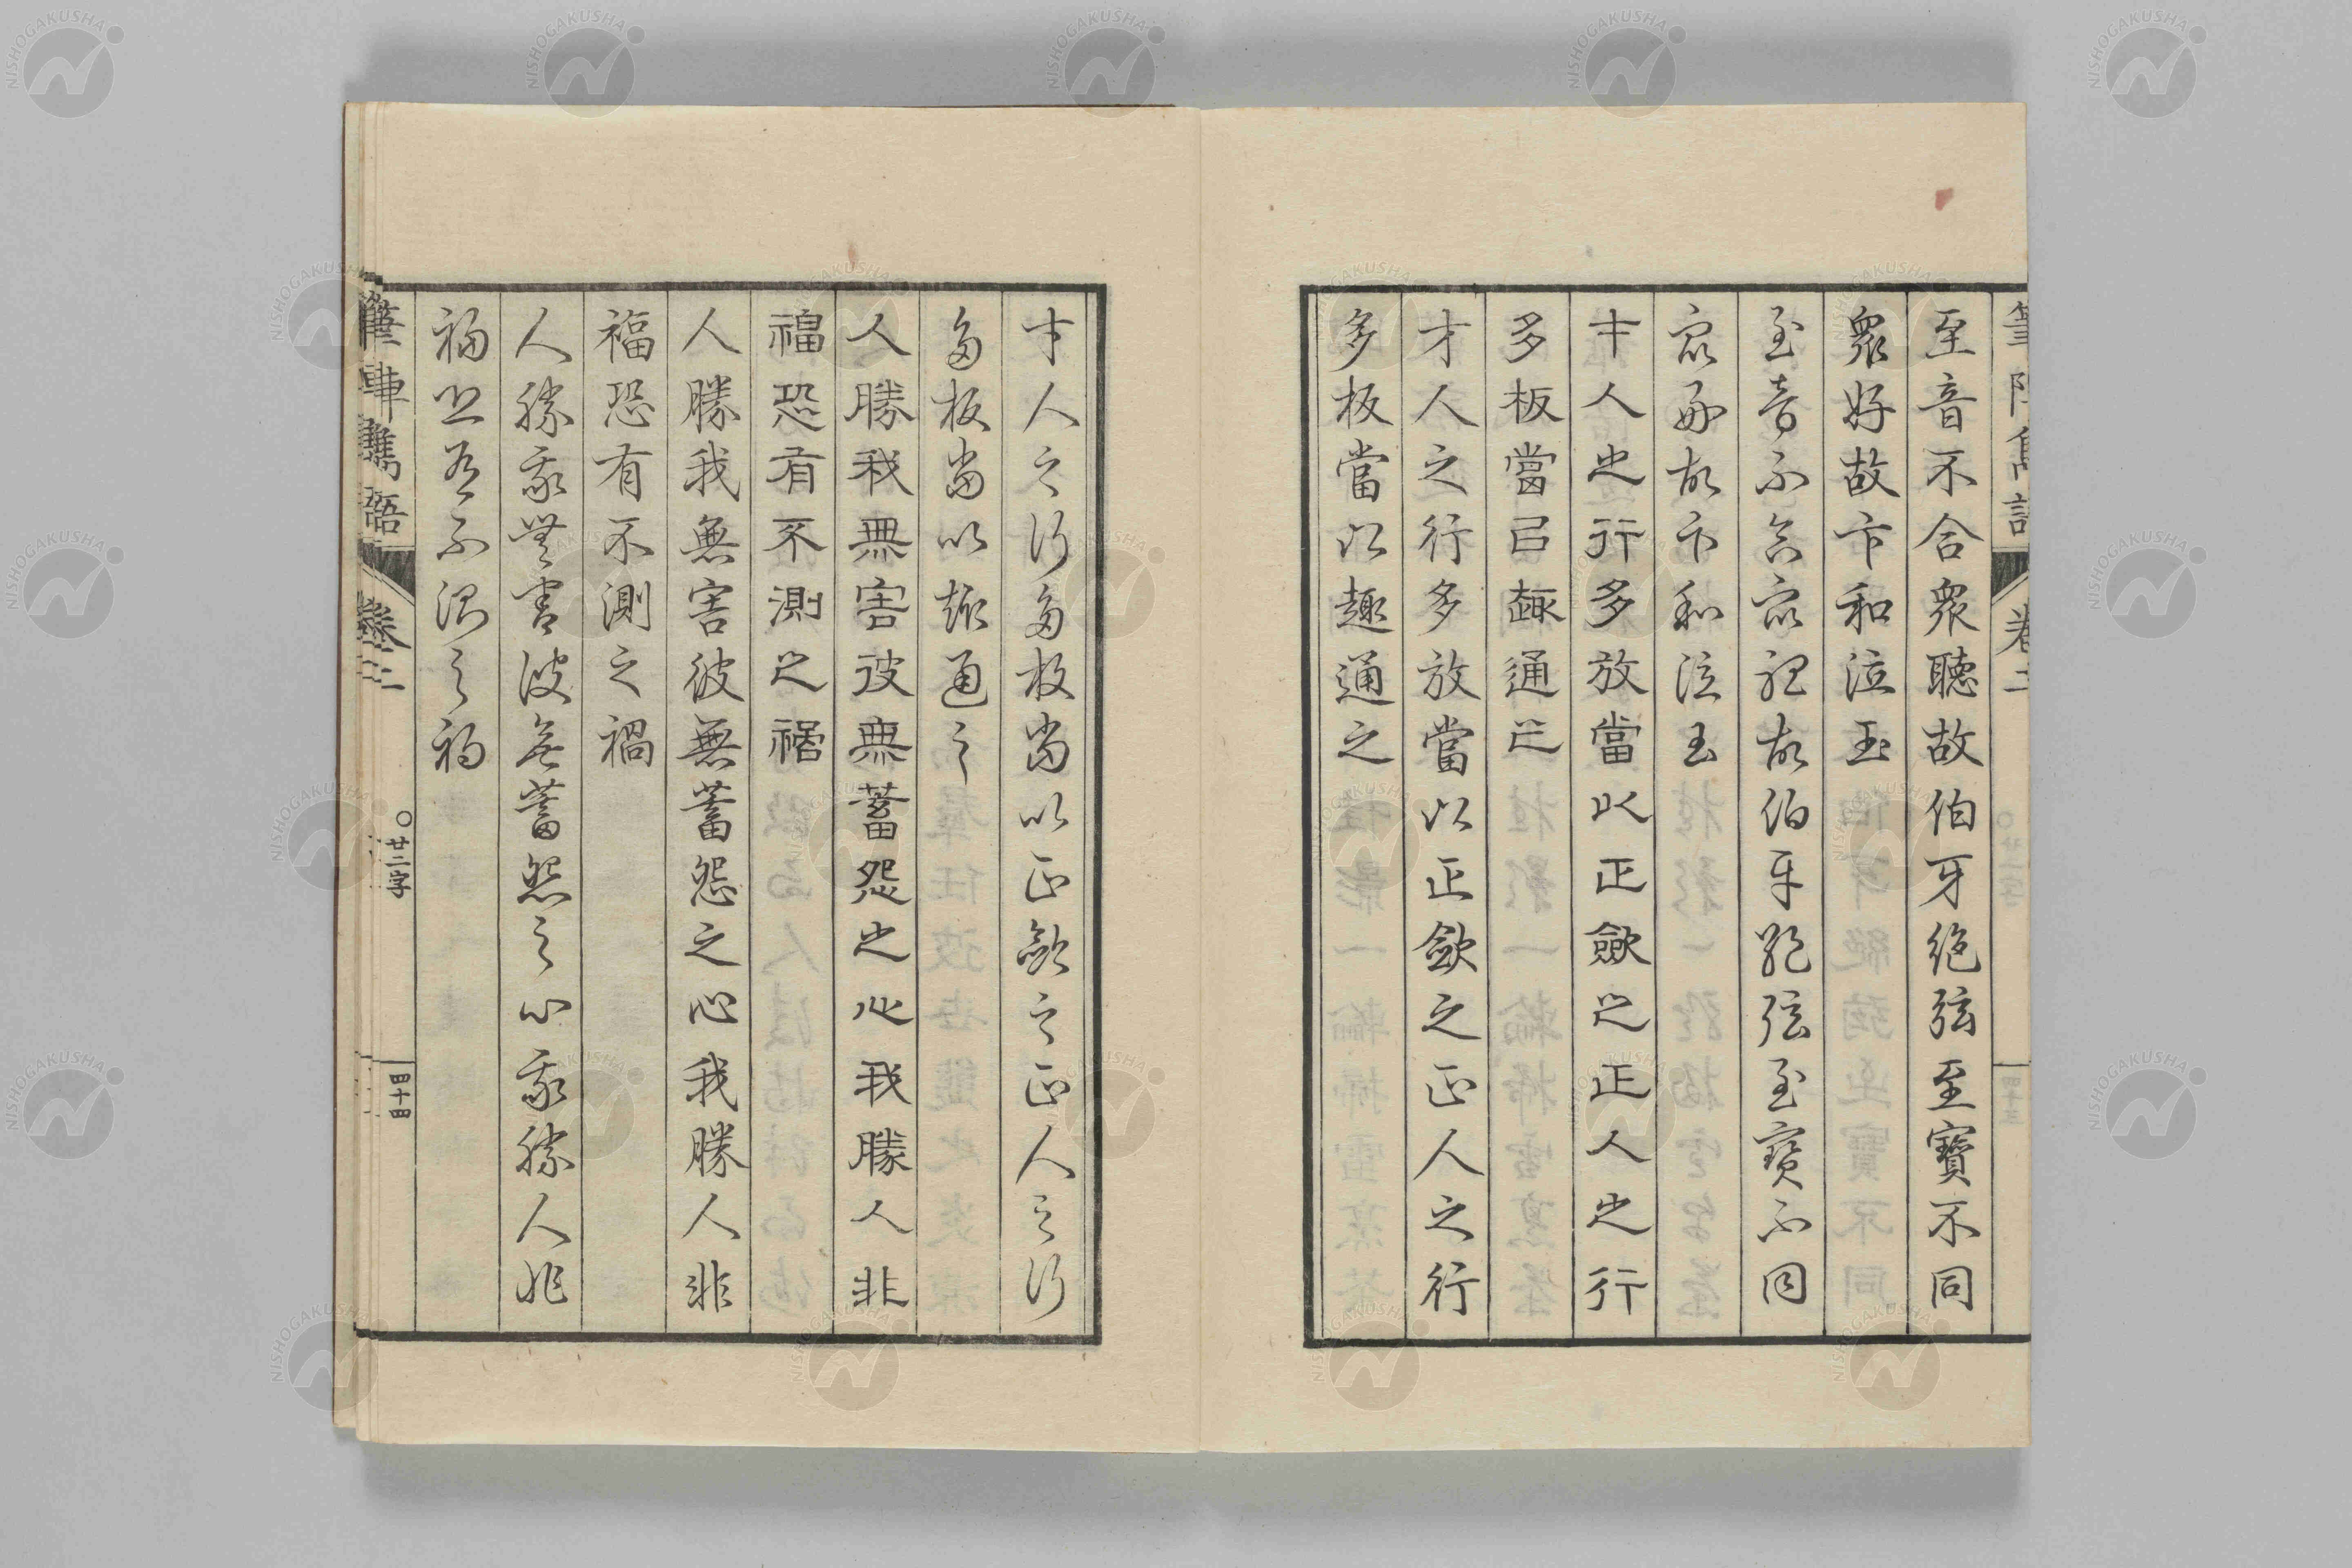 至音不合衆聽故伯牙絶弦至寶不同
衆好故卞和泣玉
至音不合衆聴故伯牙絶弦至寶不同
衆好故卞和泣玉
才人之行多放當以正斂之正人之行
多板當以趣通之
才人之行多放當以正斂之正人之行
多板當以趣通之
才人之行多放當以正斂之正人之行
多板當以趣通之
人勝我無害彼無蓄怨之心我勝人非
福恐有不測之禍
人勝我無害彼無蓄怨之心我勝人非
福恐有不測之禍
人勝我無害彼無蓄怨之心我勝人非
福恐有不測之禍
卷二
○廿二字
四十四
NISHOGAKUSHA